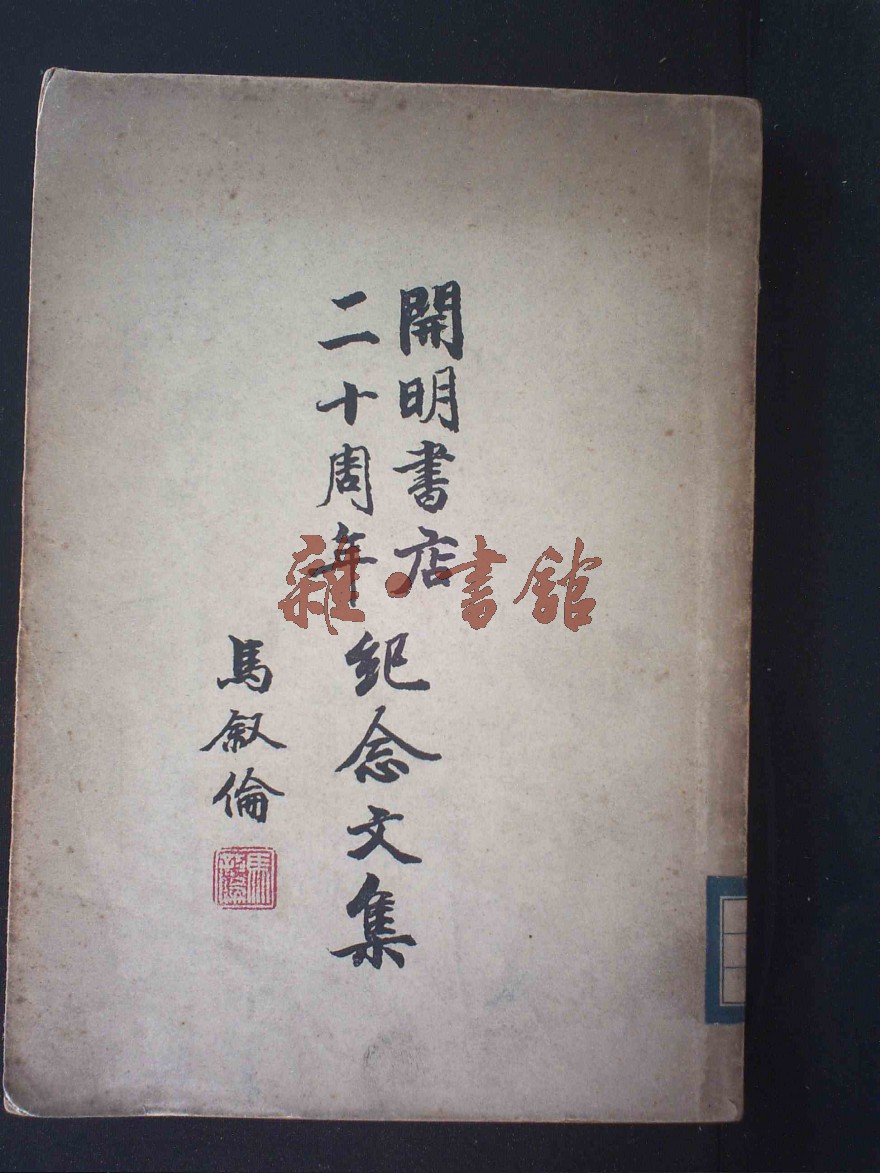 開明書店
二十周年
紀念文集
馬叙倫
雜·書館